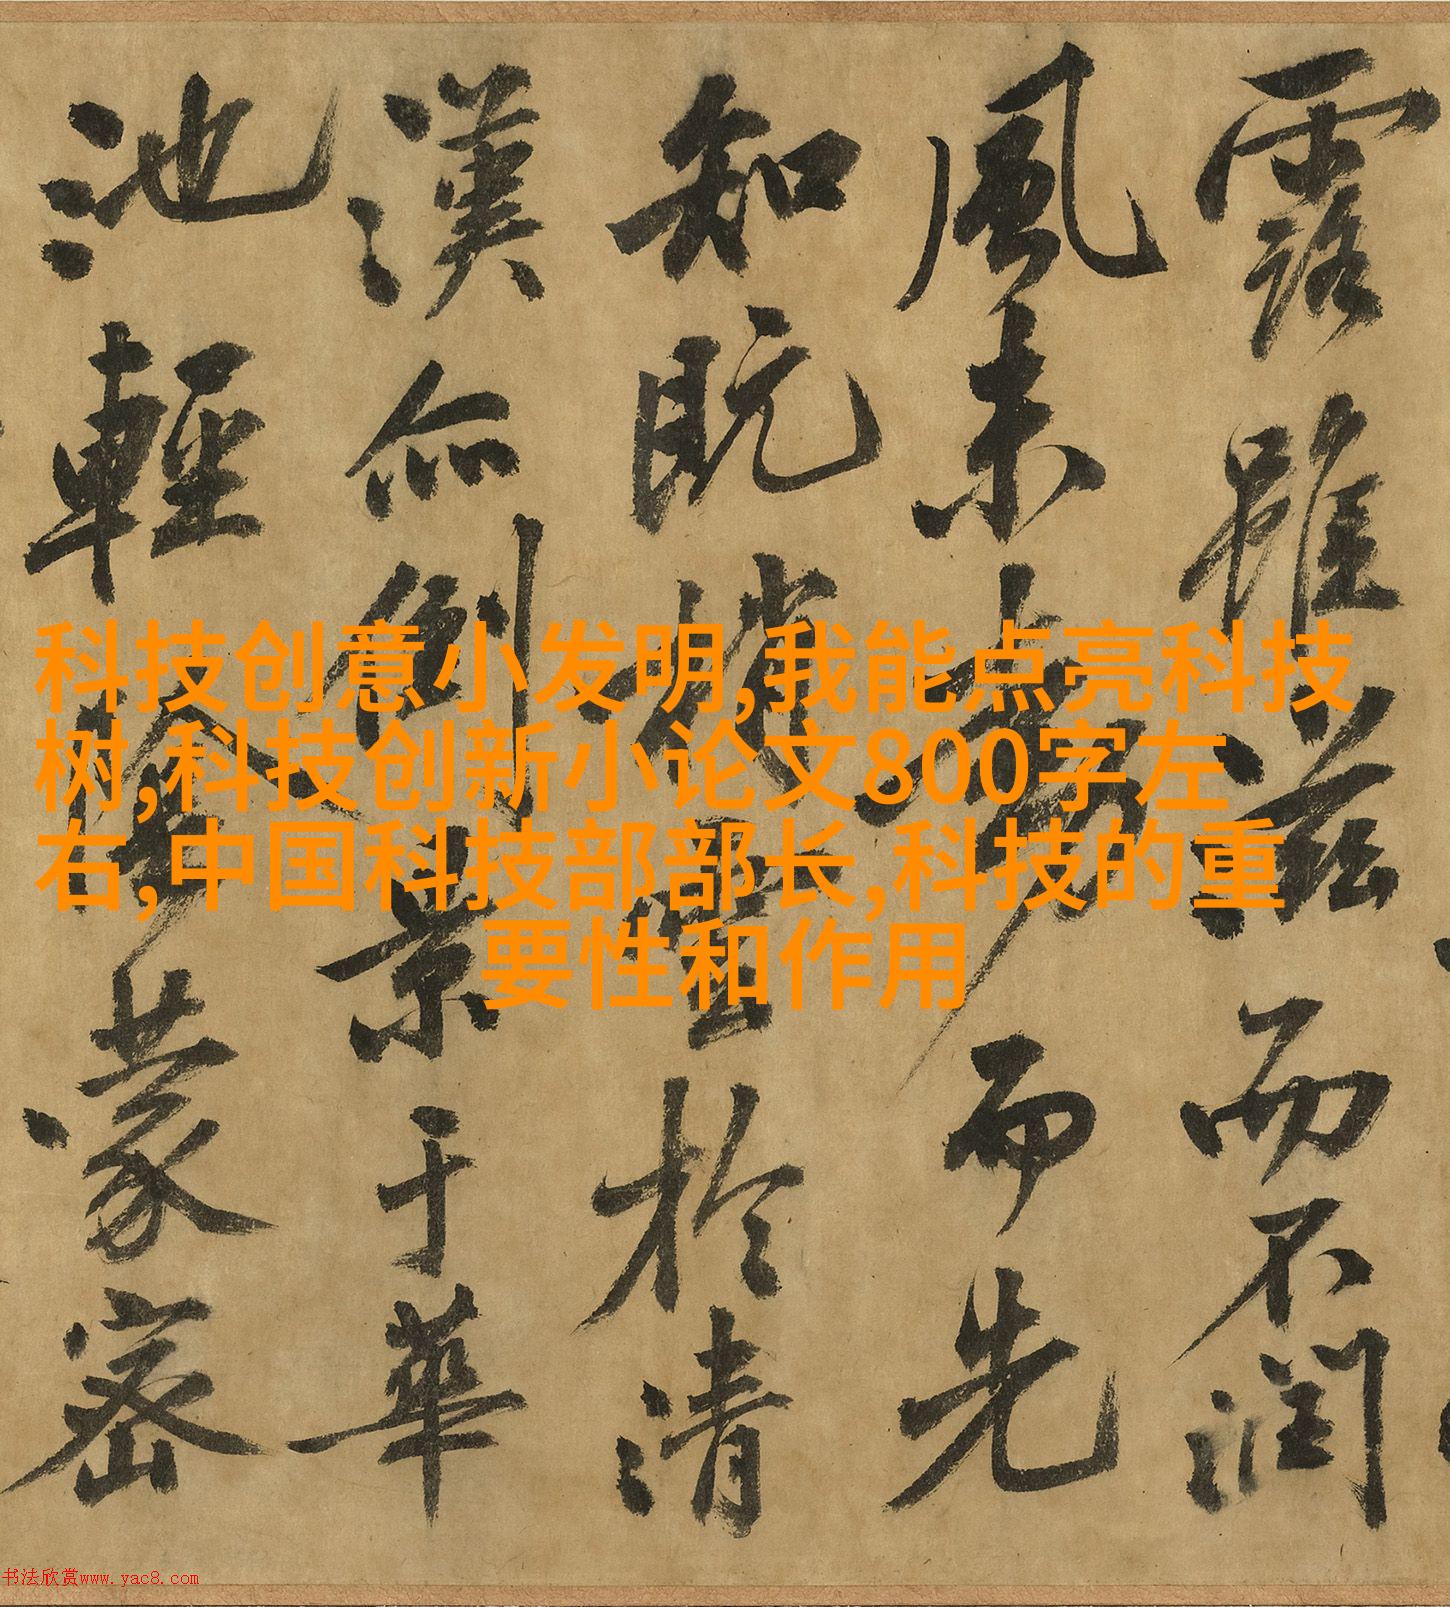 露雖滋而不潤
風未動而先
知既捎雲於清
漢亦倒景于華
池輕陰蒙密
科技创意小发明,我能点亮科技
树,科技创新小论文800字左
右,中国科技部部长,科技的重
要性和作用
书法欣赏www.yac8.com